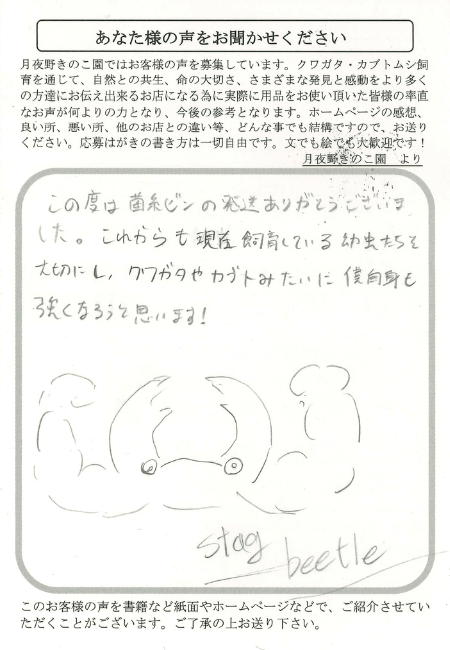 あなた様の声をお聞かせください
月夜野きのこ園ではお客様の声を募集しています。クワガタ・カブトムシ飼
育を通じて、自然との共生、命の大切さ、さまざまな発見と感動をより多く
の方達にお伝え出来るお店になる為に実際に用品をお使い頂いた皆様の率直
なお声が何よりの力となり、今後の参考となります。ホームページの感想、
良い所、悪い所、他のお店との違い等、どんな事でも結構ですので、お送り
ください。応募はがきの書き方は一切自由です。文でも絵でも大歓迎です！
月夜野きのこ園　より
この度は菌糸ビンの発送ありがとうございま
した。これからも現在飼育している幼虫たちを
大切にし、クワガタやカブトみたいに僕自身も
強くなろうと思います!
stag
beetle
このお客様の声を書籍など紙面やホームページなどで、ご紹介させてい
ただくことがございます。ご了承の上お送り下さい。